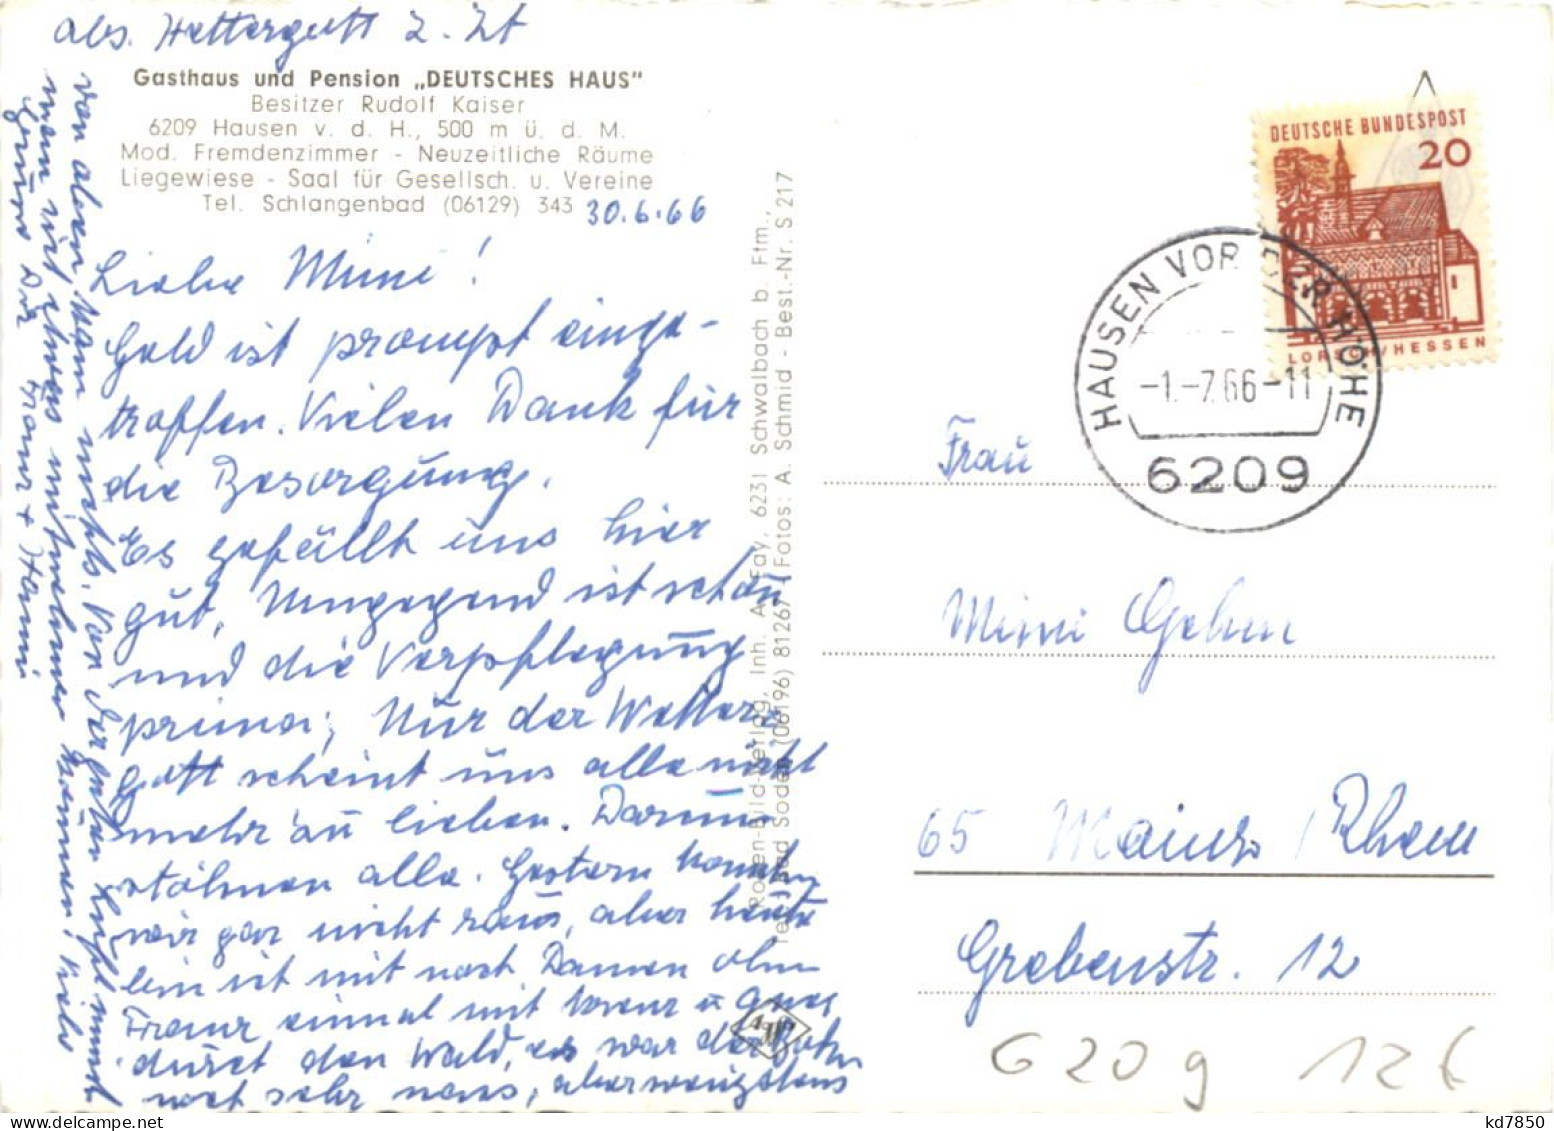 abs. Hettergott z. Zt
Gasthaus und Pension „DEUTSCHES HAUS"
Besitzer Rudolf Kaiser
6209 Hausen v. d. H., 500 m ü. d. M.
Mod. Fremdenzimmer - Neuzeitliche Räume
Liegewiese - Saal für Gesellsch. u. Vereine
Tel. Schlangenbad (06129) 343
30.6.66
Liebe Mimi!
Geld ist prompt einge-
troffen. Vielen Dank für
die Besorgung.
Es gefällt uns hier
gut, Umgegend ist schön
und die Verpflegung
prima; Nur der Wetter
gott scheint uns alle nicht
mehr zu lieben. Darum
stöhnen alle. Gestern konnten
wir gar nicht raus, aber heute
bin ich mit noch Damen ohne
Franz einmal mit
durch den Wald, es war der Boden
noch sehr nass, aber wenigstens
von oben kam nichts. Von der guten Luft nimmt
man sich etwas mitnehmen können. Viele
Grüsse Dir Franz + Hanni
Rosen-Bild-Verlag, Inh. A. Fay, 6231 Schwalbach b. Ffm.,
Bad Soden (06196) 81267 - Fotos: A. Schmid - Best.-Nr. S 217
Agfa
DEUTSCHE BUNDESPOST
20
LORSCH/HESSEN
HAUSEN VOR DER HÖHE
-1.-7.66-11
6209
Frau
Mimi Gehm
65 Mainz / Rhein
Grebenstr. 12
6209 12€
kd7850